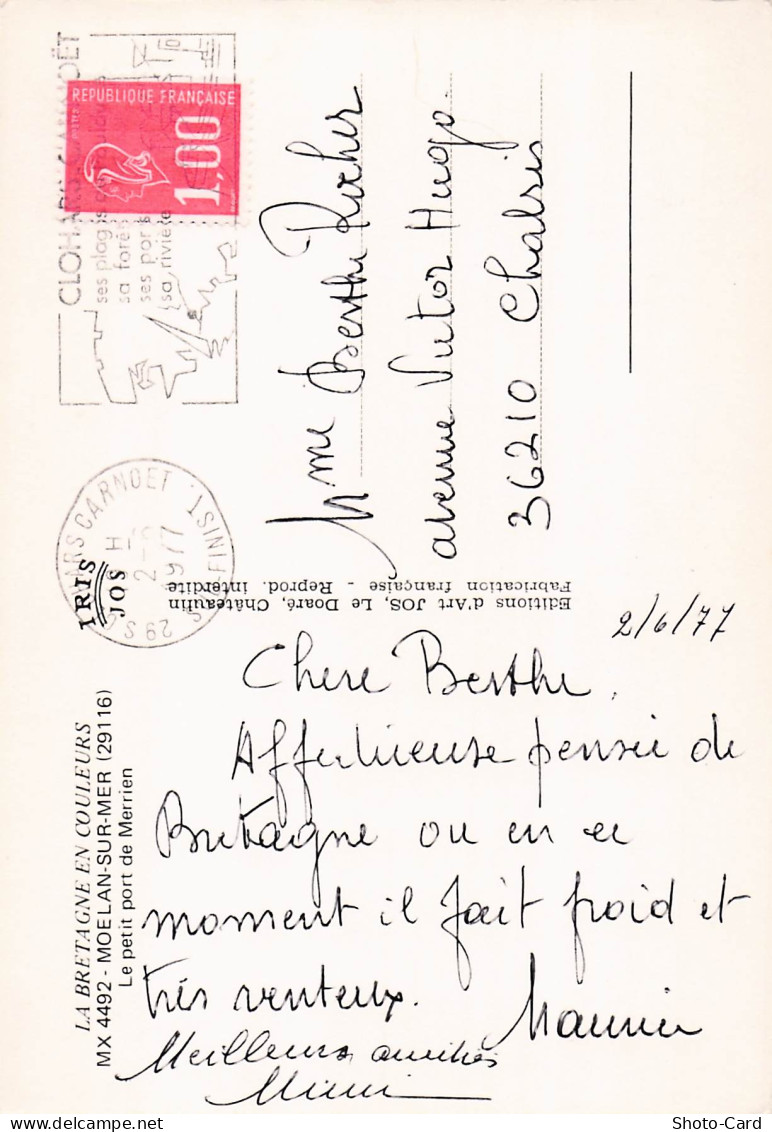 CLOHARS-CARNOËT
ses plages
sa forêt
ses ports
sa rivière
REPUBLIQUE FRANÇAISE
POSTES
1,00
CLOHARS CARNOET
H
2-6
1977
29 S FINIST
IRIS
JOS
Mme Berthe Rocher
avenue Victor Hugo.
36210 Chabris
Editions d'Art JOS, Le Doaré, Châteaulin
Fabrication française - Reprod. interdite
LA BRETAGNE EN COULEURS
MX 4492 - MOELAN-SUR-MER (29116)
Le petit port de Merrien
2/6/77
Chere Berthe,
Affectueuse pensée de
Bretagne ou en ce
moment il fait froid et
très venteux.
Meilleures amitiés
Mimi
Delcampe.net
Shoto-Card